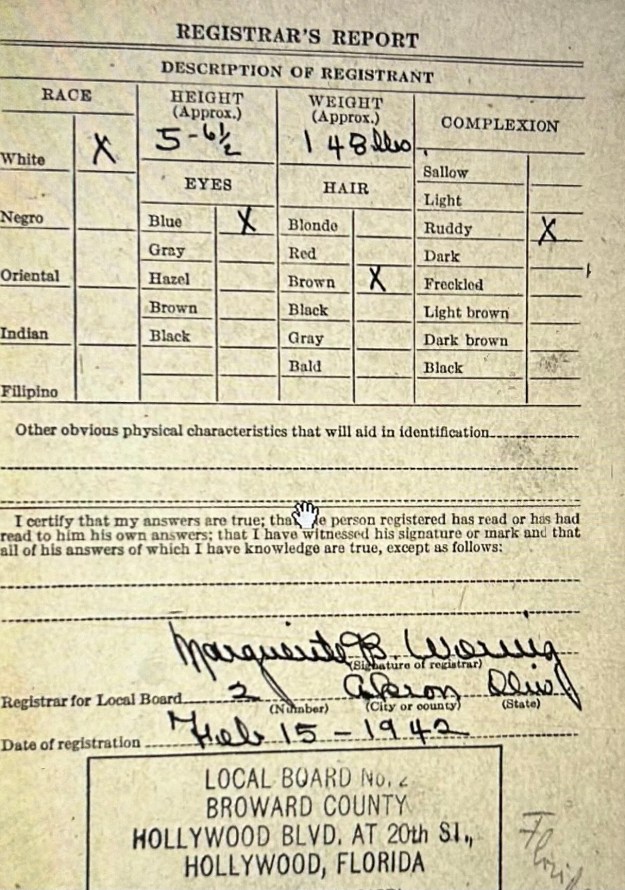 REGISTRAR'S REPORT
DESCRIPTION OF REGISTRANT
RACE
HEIGHT
(Approx.)
WEIGHT
(Approx.)
COMPLEXION
5-6½
148 lbs.
White X
Sallow
EYES
HAIR
Light
Negro
Blue X
Blonde
Ruddy X
Gray
Red
Dark
Oriental
Hazel
Brown X
Freckled
Brown
Black
Light brown
Indian
Black
Gray
Dark brown
Bald
Black
Filipino
Other obvious physical characteristics that will aid in identification
I certify that my answers are true; that person registered has read or has had
read to him his own answers; that I have witnessed his signature or mark and that
all of his answers of which I have knowledge are true, except as follows:
Marguerite B.
(Signature of registrar)
Registrar for Local Board 2 Akron Ohio
(Number) (City or county) (State)
Date of registration Feb 15-1942
LOCAL BOARD No. 2
BROWARD COUNTY
HOLLYWOOD BLVD. AT 20th ST.,
HOLLYWOOD, FLORIDA